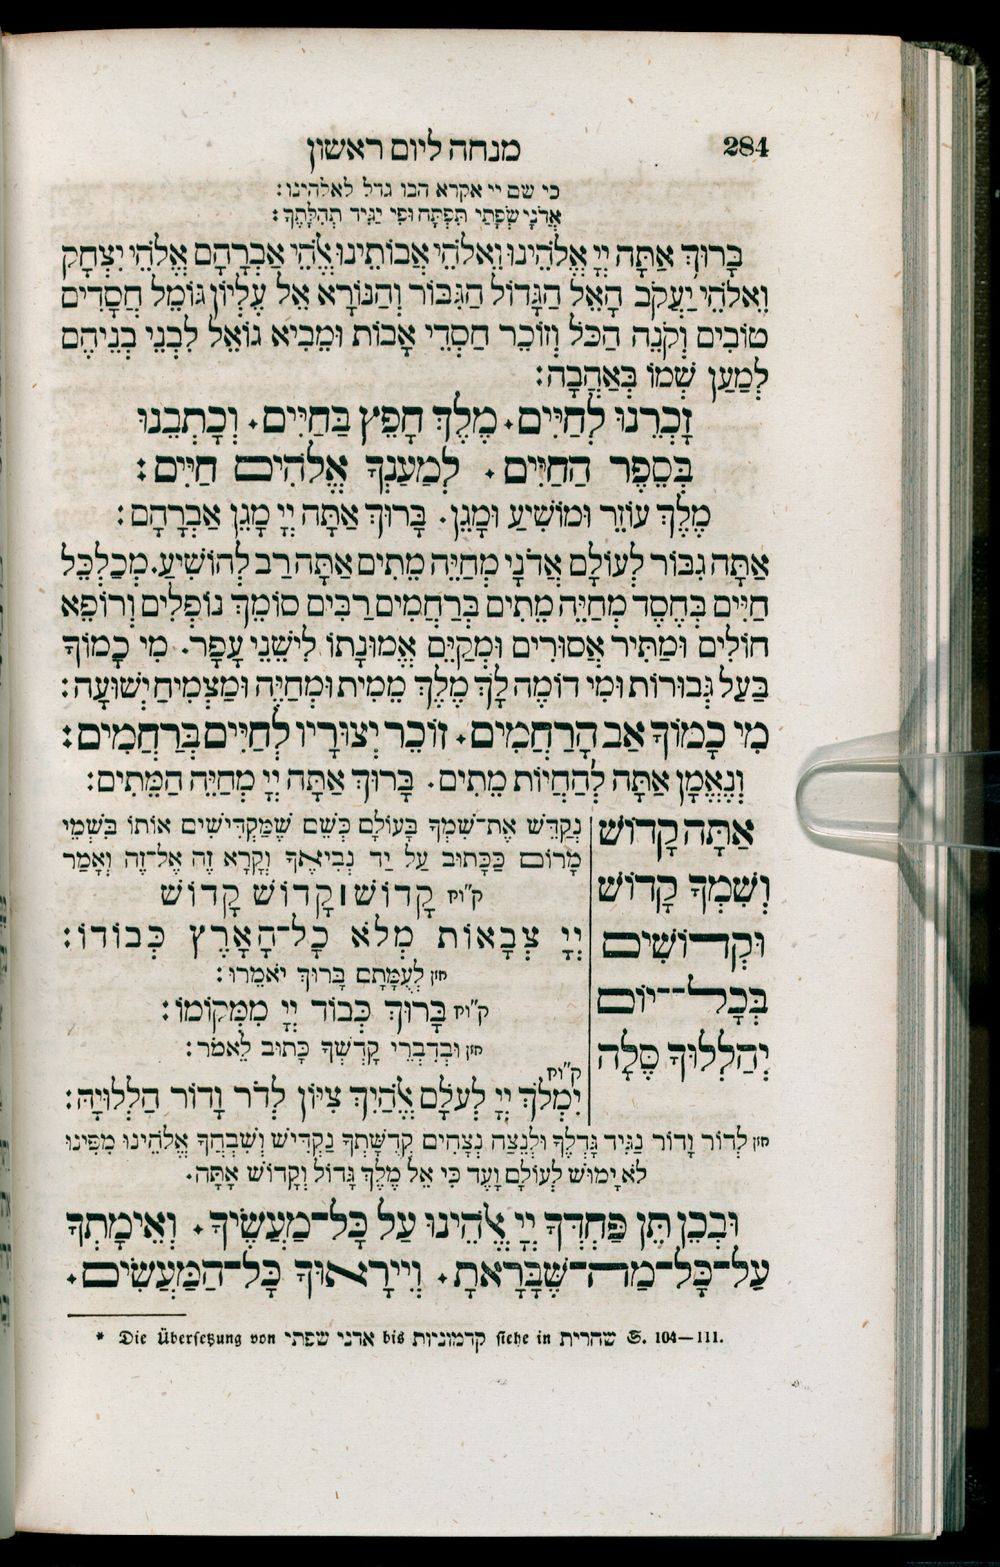 284 מנחה ליום ראשון
כי שם יי אקרא הבו גדל לאלהינו:
אֲדֹנָי שְׂפָתַי תִּפְתָּח וּפִי יַגִּיד תְּהִלָּתֶךָ:
בָּרוּךְ אַתָּה יְיָ אֱלֹהֵינוּ וֵאלֹהֵי אֲבוֹתֵינוּ אֱלֹהֵי אַבְרָהָם אֱלֹהֵי יִצְחָק
וֵאלֹהֵי יַעֲקֹב הָאֵל הַגָּדוֹל הַגִּבּוֹר וְהַנּוֹרָא אֵל עֶלְיוֹן גּוֹמֵל חֲסָדִים
טוֹבִים וְקֹנֵה הַכֹּל וְזוֹכֵר חַסְדֵי אָבוֹת וּמֵבִיא גוֹאֵל לִבְנֵי בְנֵיהֶם
לְמַעַן שְׁמוֹ בְּאַהֲבָה:
זָכְרֵנוּ לְחַיִּים. מֶלֶךְ חָפֵץ בַּחַיִּים. וְכָתְבֵנוּ
בְּסֵפֶר הַחַיִּים. לְמַעַנְךָ אֱלֹהִים חַיִּים:
מֶלֶךְ עוֹזֵר וּמוֹשִׁיעַ וּמָגֵן. בָּרוּךְ אַתָּה יְיָ מָגֵן אַבְרָהָם:
אַתָּה גִבּוֹר לְעוֹלָם אֲדֹנָי מְחַיֵּה מֵתִים אַתָּה רַב לְהוֹשִׁיעַ. מְכַלְכֵּל
חַיִּים בְּחֶסֶד מְחַיֵּה מֵתִים בְּרַחֲמִים רַבִּים סוֹמֵךְ נוֹפְלִים וְרוֹפֵא
חוֹלִים וּמַתִּיר אֲסוּרִים וּמְקַיֵּם אֱמוּנָתוֹ לִישֵׁנֵי עָפָר. מִי כָמוֹךָ
בַּעַל גְּבוּרוֹת וּמִי דוֹמֶה לָּךְ מֶלֶךְ מֵמִית וּמְחַיֶּה וּמַצְמִיחַ יְשׁוּעָה:
מִי כָמוֹךָ אַב הָרַחֲמִים. זוֹכֵר יְצוּרָיו לְחַיִּים בְּרַחֲמִים:
וְנֶאֱמָן אַתָּה לְהַחֲיוֹת מֵתִים. בָּרוּךְ אַתָּה יְיָ מְחַיֵּה הַמֵּתִים:
אַתָּה קָדוֹשׁ
וְשִׁמְךָ קָדוֹשׁ
וּקְדוֹשִׁים
בְּכָל־יוֹם
יְהַלְלוּךָ סֶּלָה
נְקַדֵּשׁ אֶת־שִׁמְךָ בָּעוֹלָם כְּשֵׁם שֶׁמַּקְדִּישִׁים אוֹתוֹ בִּשְׁמֵי
מָרוֹם כַּכָּתוּב עַל יַד נְבִיאֶךָ וְקָרָא זֶה אֶל־זֶה וְאָמַר
ק״וח קָדוֹשׁ ׀ קָדוֹשׁ קָדוֹשׁ
יְיָ צְבָאוֹת מְלֹא כָל־הָאָרֶץ כְּבוֹדוֹ:
חזן לְעֻמָּתָם בָּרוּךְ יֹאמֵרוּ:
ק״וח בָּרוּךְ כְּבוֹד יְיָ מִמְּקוֹמוֹ:
חזן וּבְדִבְרֵי קָדְשְׁךָ כָּתוּב לֵאמֹר:
ק״וח
יִמְלֹךְ יְיָ לְעוֹלָם אֱלֹהַיִךְ צִיּוֹן לְדֹר וָדוֹר הַלְלוּיָהּ:
חזן לְדוֹר וָדוֹר נַגִּיד גָּדְלֶךָ וּלְנֵצַח נְצָחִים קְדֻשָּׁתְךָ נַקְדִּישׁ וְשִׁבְחֲךָ אֱלֹהֵינוּ מִפִּינוּ
לֹא יָמוּשׁ לְעוֹלָם וָעֶד כִּי אֵל מֶלֶךְ גָּדוֹל וְקָדוֹשׁ אָתָּה.
וּבְכֵן תֵּן פַּחְדְּךָ יְיָ אֱלֹהֵינוּ עַל כָּל־מַעֲשֶׂיךָ. וְאֵימָתְךָ
עַל־כָּל־מַה־שֶּׁבָּרָאתָ. וְיִירָאוּךָ כָּל־הַמַּעֲשִׂים.
* Die Übersetzung von אדני שפתי bis קדמוניות siehe in שחרית S. 104—111.